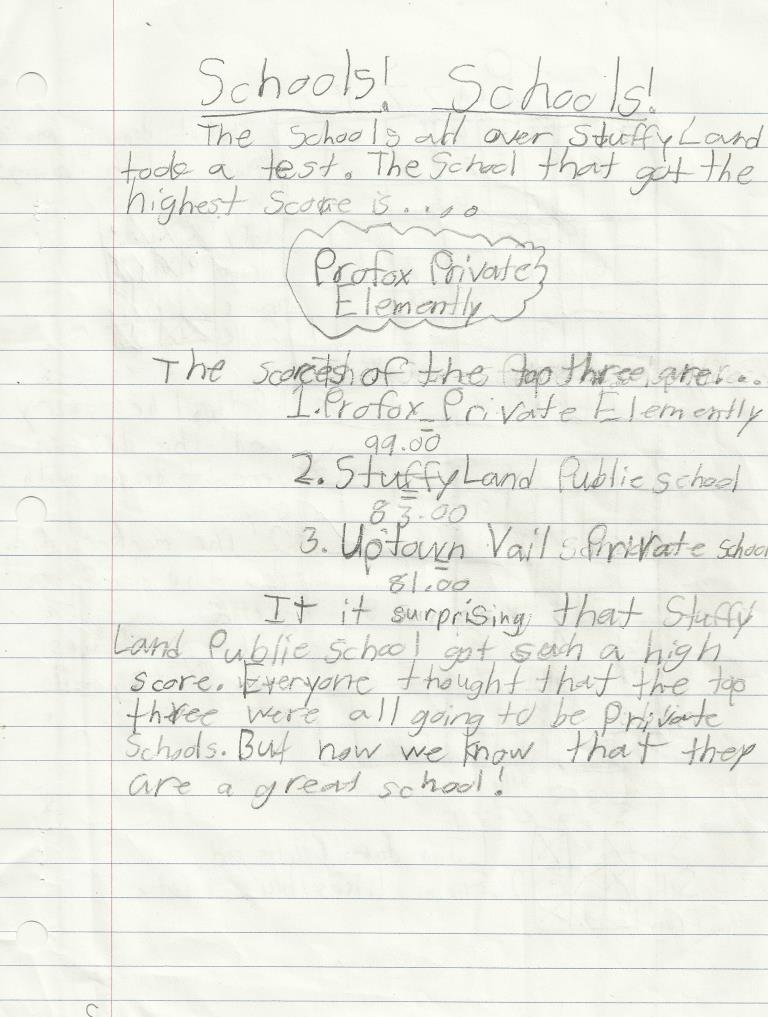 Schools! Schools!
The Schools all over Stuffy Land
took a test. The School that got the
highest Score is.....
Profox Private
Elemently
The scores of the top three are...
1. Profox Private Elemently
99.00
2. Stuffy Land Public school
83.00
3. Uptown Vail Private school
81.00
It it surprising that Stuffy
Land Public School got such a high
score. Everyone thought that the top
three were all going to be private
Schools. But now we know that they
are a great school!